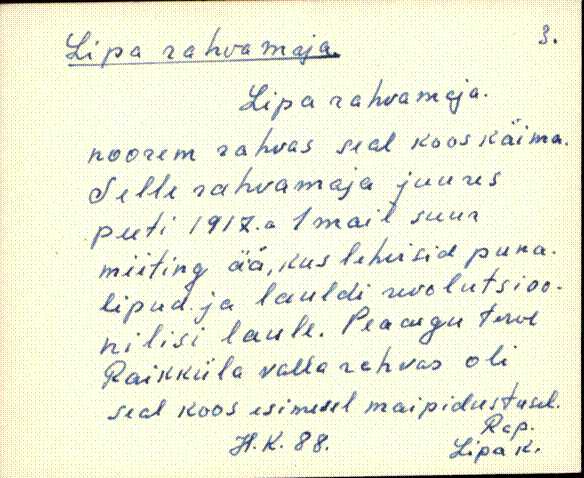 Lipa rahvamaja. 3.
Lipa rahvamaja.
noorem rahvas seal koos käima.
Selle rahvamaja juures
peeti 1917.a 1 mail suur
miiting ää, kus lehvisid puna-
lipud ja lauldi revolutsioo-
nilisi laule. Peaaegu terve
Raikküla valla rahvas oli
seal koos esimesel maipidustusel.
H.K. 88. Rap.
Lipa k.